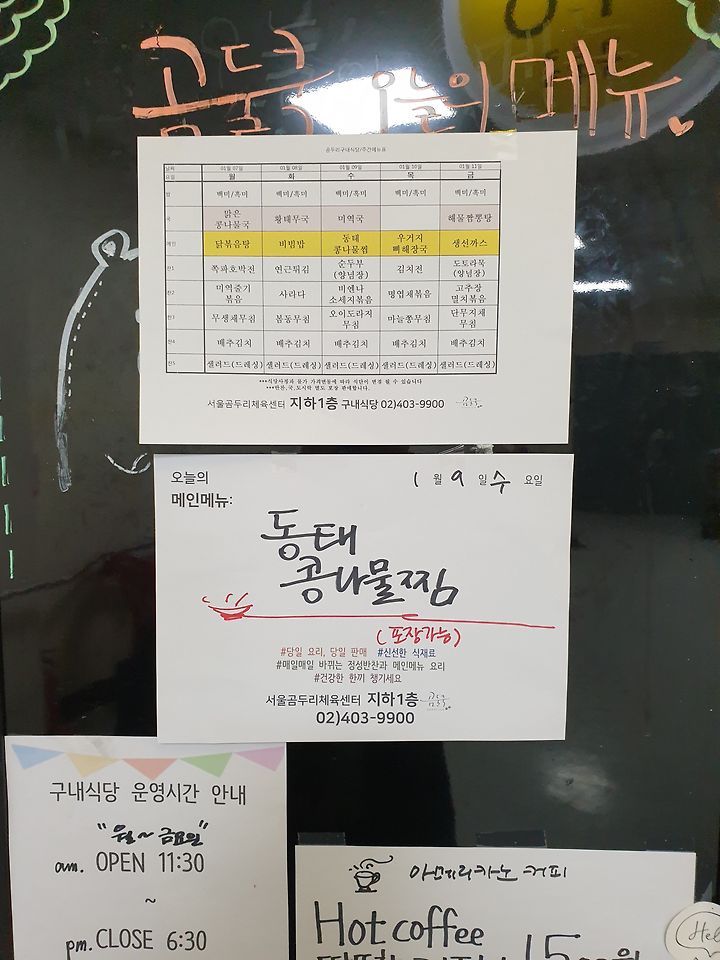 곰둘쿡 오늘의 메뉴.
곰두리구내식당/주간메뉴표
날짜 01월 07일 01월 08일 01월 09일 01월 10일 01월 11일
요일 월 화 수 목 금
밥 백미/흑미 백미/흑미 백미/흑미 백미/흑미 백미/흑미
국 맑은 콩나물국 황태무국 미역국 해물짬뽕탕
메인 닭볶음탕 비빔밥 동태 콩나물찜 우거지 뼈해장국 생선까스
찬1 쪽파호박전 연근튀김 순두부 (양념장) 김치전 도토리묵 (양념장)
찬2 미역줄기 볶음 사라다 비엔나 소세지볶음 명엽채볶음 고추장 멸치볶음
찬3 무생채무침 봄동무침 오이도라지 무침 마늘쫑무침 단무지채 무침
찬4 배추김치 배추김치 배추김치 배추김치 배추김치
찬5 샐러드(드레싱) 샐러드(드레싱) 샐러드(드레싱) 샐러드(드레싱) 샐러드(드레싱)
***식당사정과 물가 가격변동에 따라 식단이 변경 될 수 있습니다
***반찬,국,도시락 별도 포장 판매합니다.
서울곰두리체육센터 지하1층 구내식당 02)403-9900
오늘의 1 월 9 일 수 요일
메인메뉴:
동태
콩나물찜
(포장가능)
#당일 요리, 당일 판매 #신선한 식재료
#매일매일 바뀌는 정성반찬과 메인메뉴 요리
#건강한 한끼 챙기세요
서울곰두리체육센터 지하1층 곰둘쿡
02)403-9900
구내식당 운영시간 안내
"월~금요일"
am. OPEN 11:30
~
pm. CLOSE 6:30
아메리카노 커피
Hot coffee
Hel